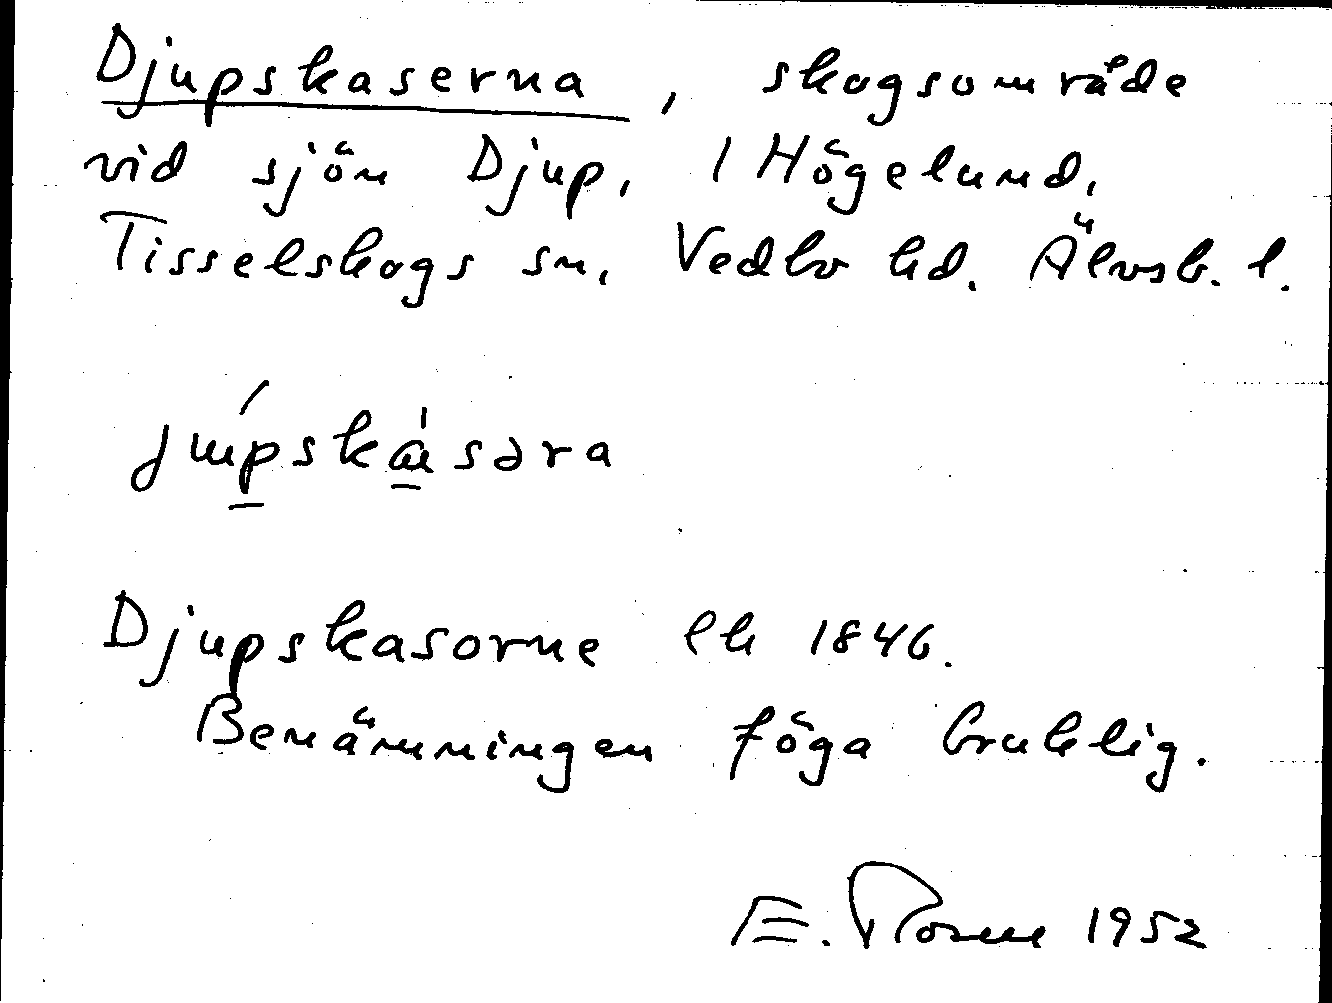 Djupskaserna, skogsområde
vid sjön Djup, 1 Högelund,
Tisselskogs sn, Vedbo hd. Älvsb. l.
Djupskasorne lk 1846.
Benämningen föga bruklig.
E. 1952